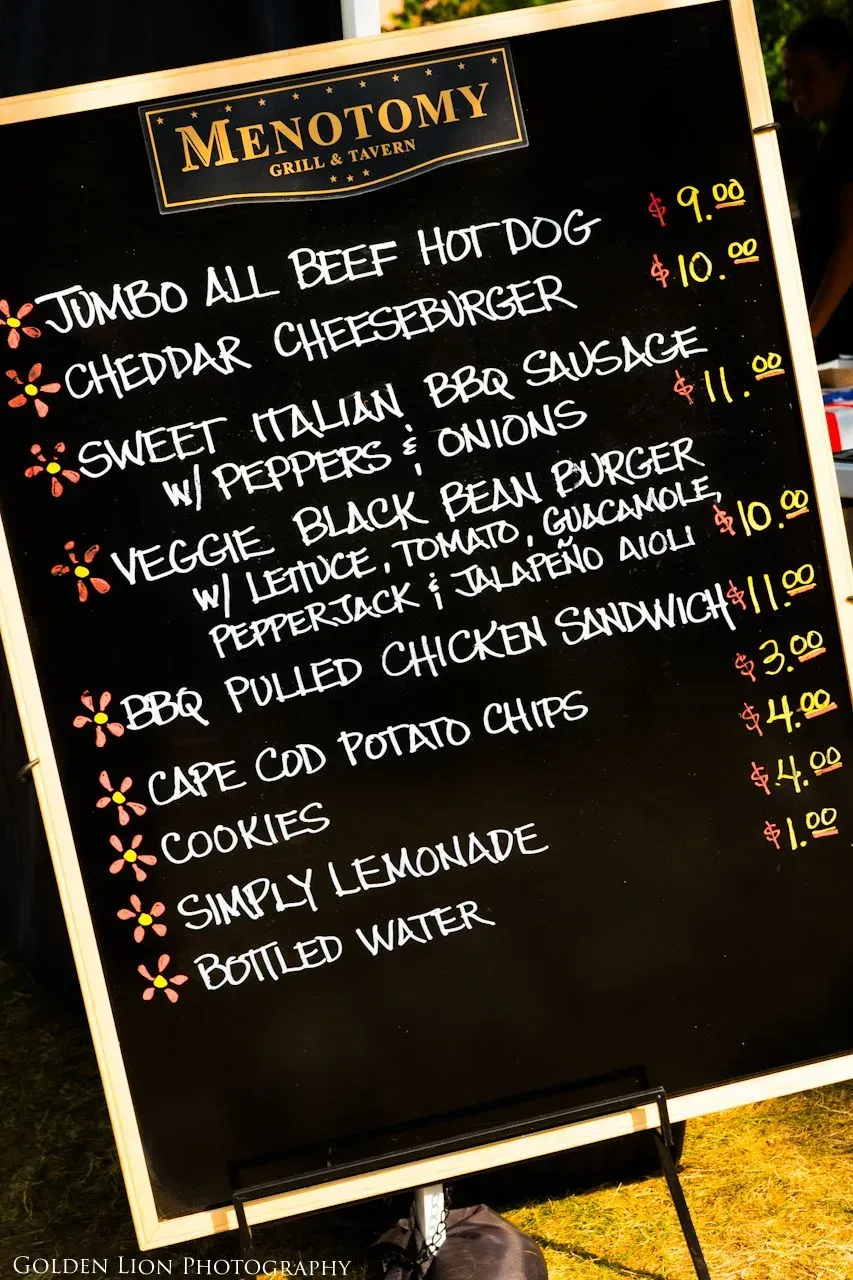 MENOTOMY
GRILL & TAVERN
JUMBO ALL BEEF HOT DOG $9.00
CHEDDAR CHEESEBURGER $10.00
SWEET ITALIAN BBQ SAUSAGE
W/ PEPPERS & ONIONS $11.00
VEGGIE BLACK BEAN BURGER
W/ LETTUCE, TOMATO, GUACAMOLE,
PEPPERJACK & JALAPEÑO AIOLI $10.00
BBQ PULLED CHICKEN SANDWICH $11.00
CAPE COD POTATO CHIPS $3.00
COOKIES $4.00
SIMPLY LEMONADE $4.00
BOTTLED WATER $1.00
GOLDEN LION PHOTOGRAPHY